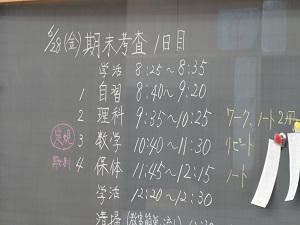 6/28(金)期末考査 1日目
学活 8:25~8:35
1 自習 8:40~9:20
2 理科 9:35~10:25 ワーク、ノート2冊
3 数学 10:40~11:30 リピート
4 保体 11:45~12:15 ノート
学活 12:20~12:30
清掃